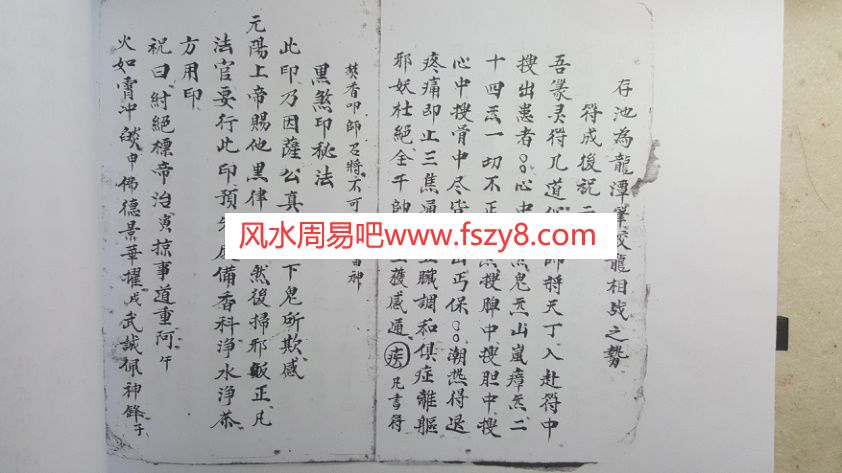 存池為龍潭筆蛟龍相战之勢
符成後祝
吾篆灵符几道 将天丁入赴符中
搜出患者 心中 炁鬼炁山嵐瘴炁二
十四炁一切不正 炁搜脾中搜胆中搜
心中搜胃中尽皆 出丐保 潮热得退
疼痛即止三焦通 臟調和俱症離軀
邪妖杜絕全千帥 獲感通 凡書符
焚香叩師召將不可 雷神
黑煞印秘法
此印乃因薩公真 下鬼所欺感
元陽上帝賜他黑律 然後掃邪皈正凡
法官要行此印預先 備香科淨水淨茶
方用印
祝曰紂絕標帝治寅掠事道重阿午
火如霄冲燄申佛德景華擢戍武誠佩神鋒子
风水周易吧www.fszy8.com